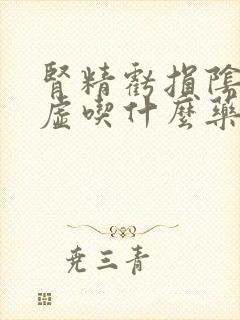 腎精虧損陰
虛喫什麼藥
尭三青